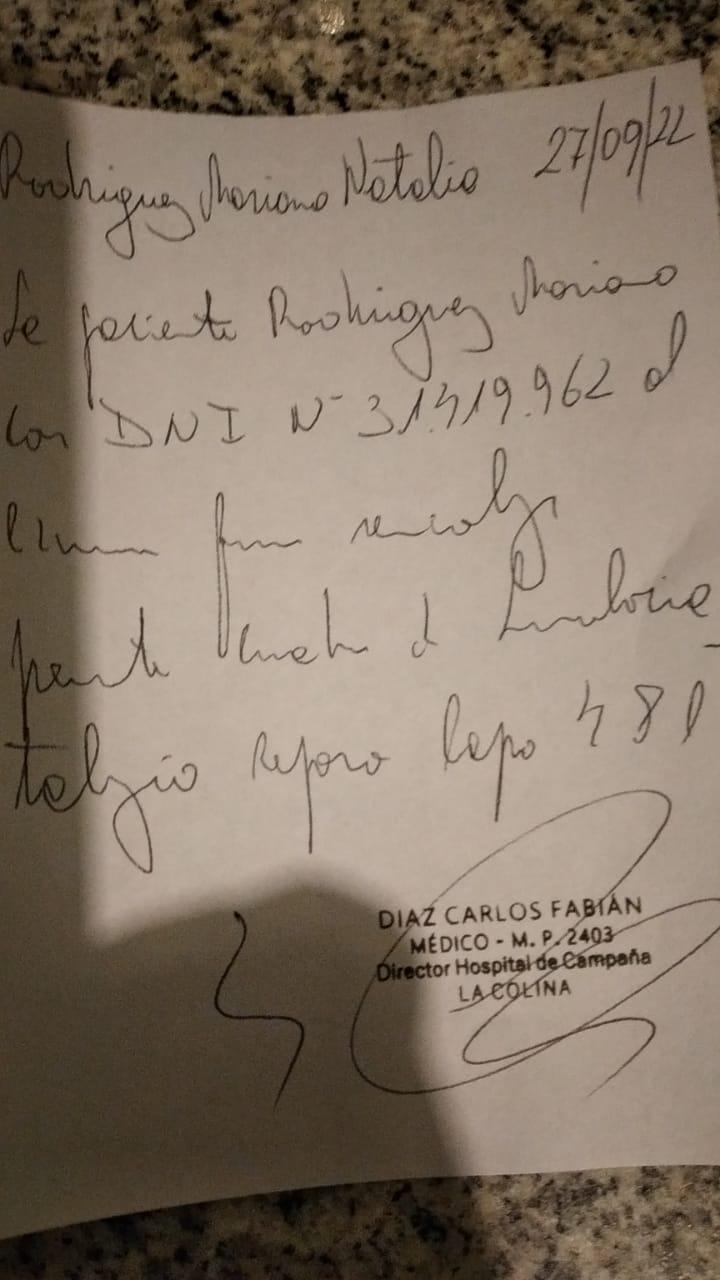 Rodriguez Mariana Natalia 27/09/22
La paciente Rodriguez Mariana
con DNI N° 31.419.962 al
presenta de Lumbocia
talgia Reposo lapso 48
DIAZ CARLOS FABIÁN
MÉDICO - M. P. 2403
Director Hospital de Campaña
LA COLINA